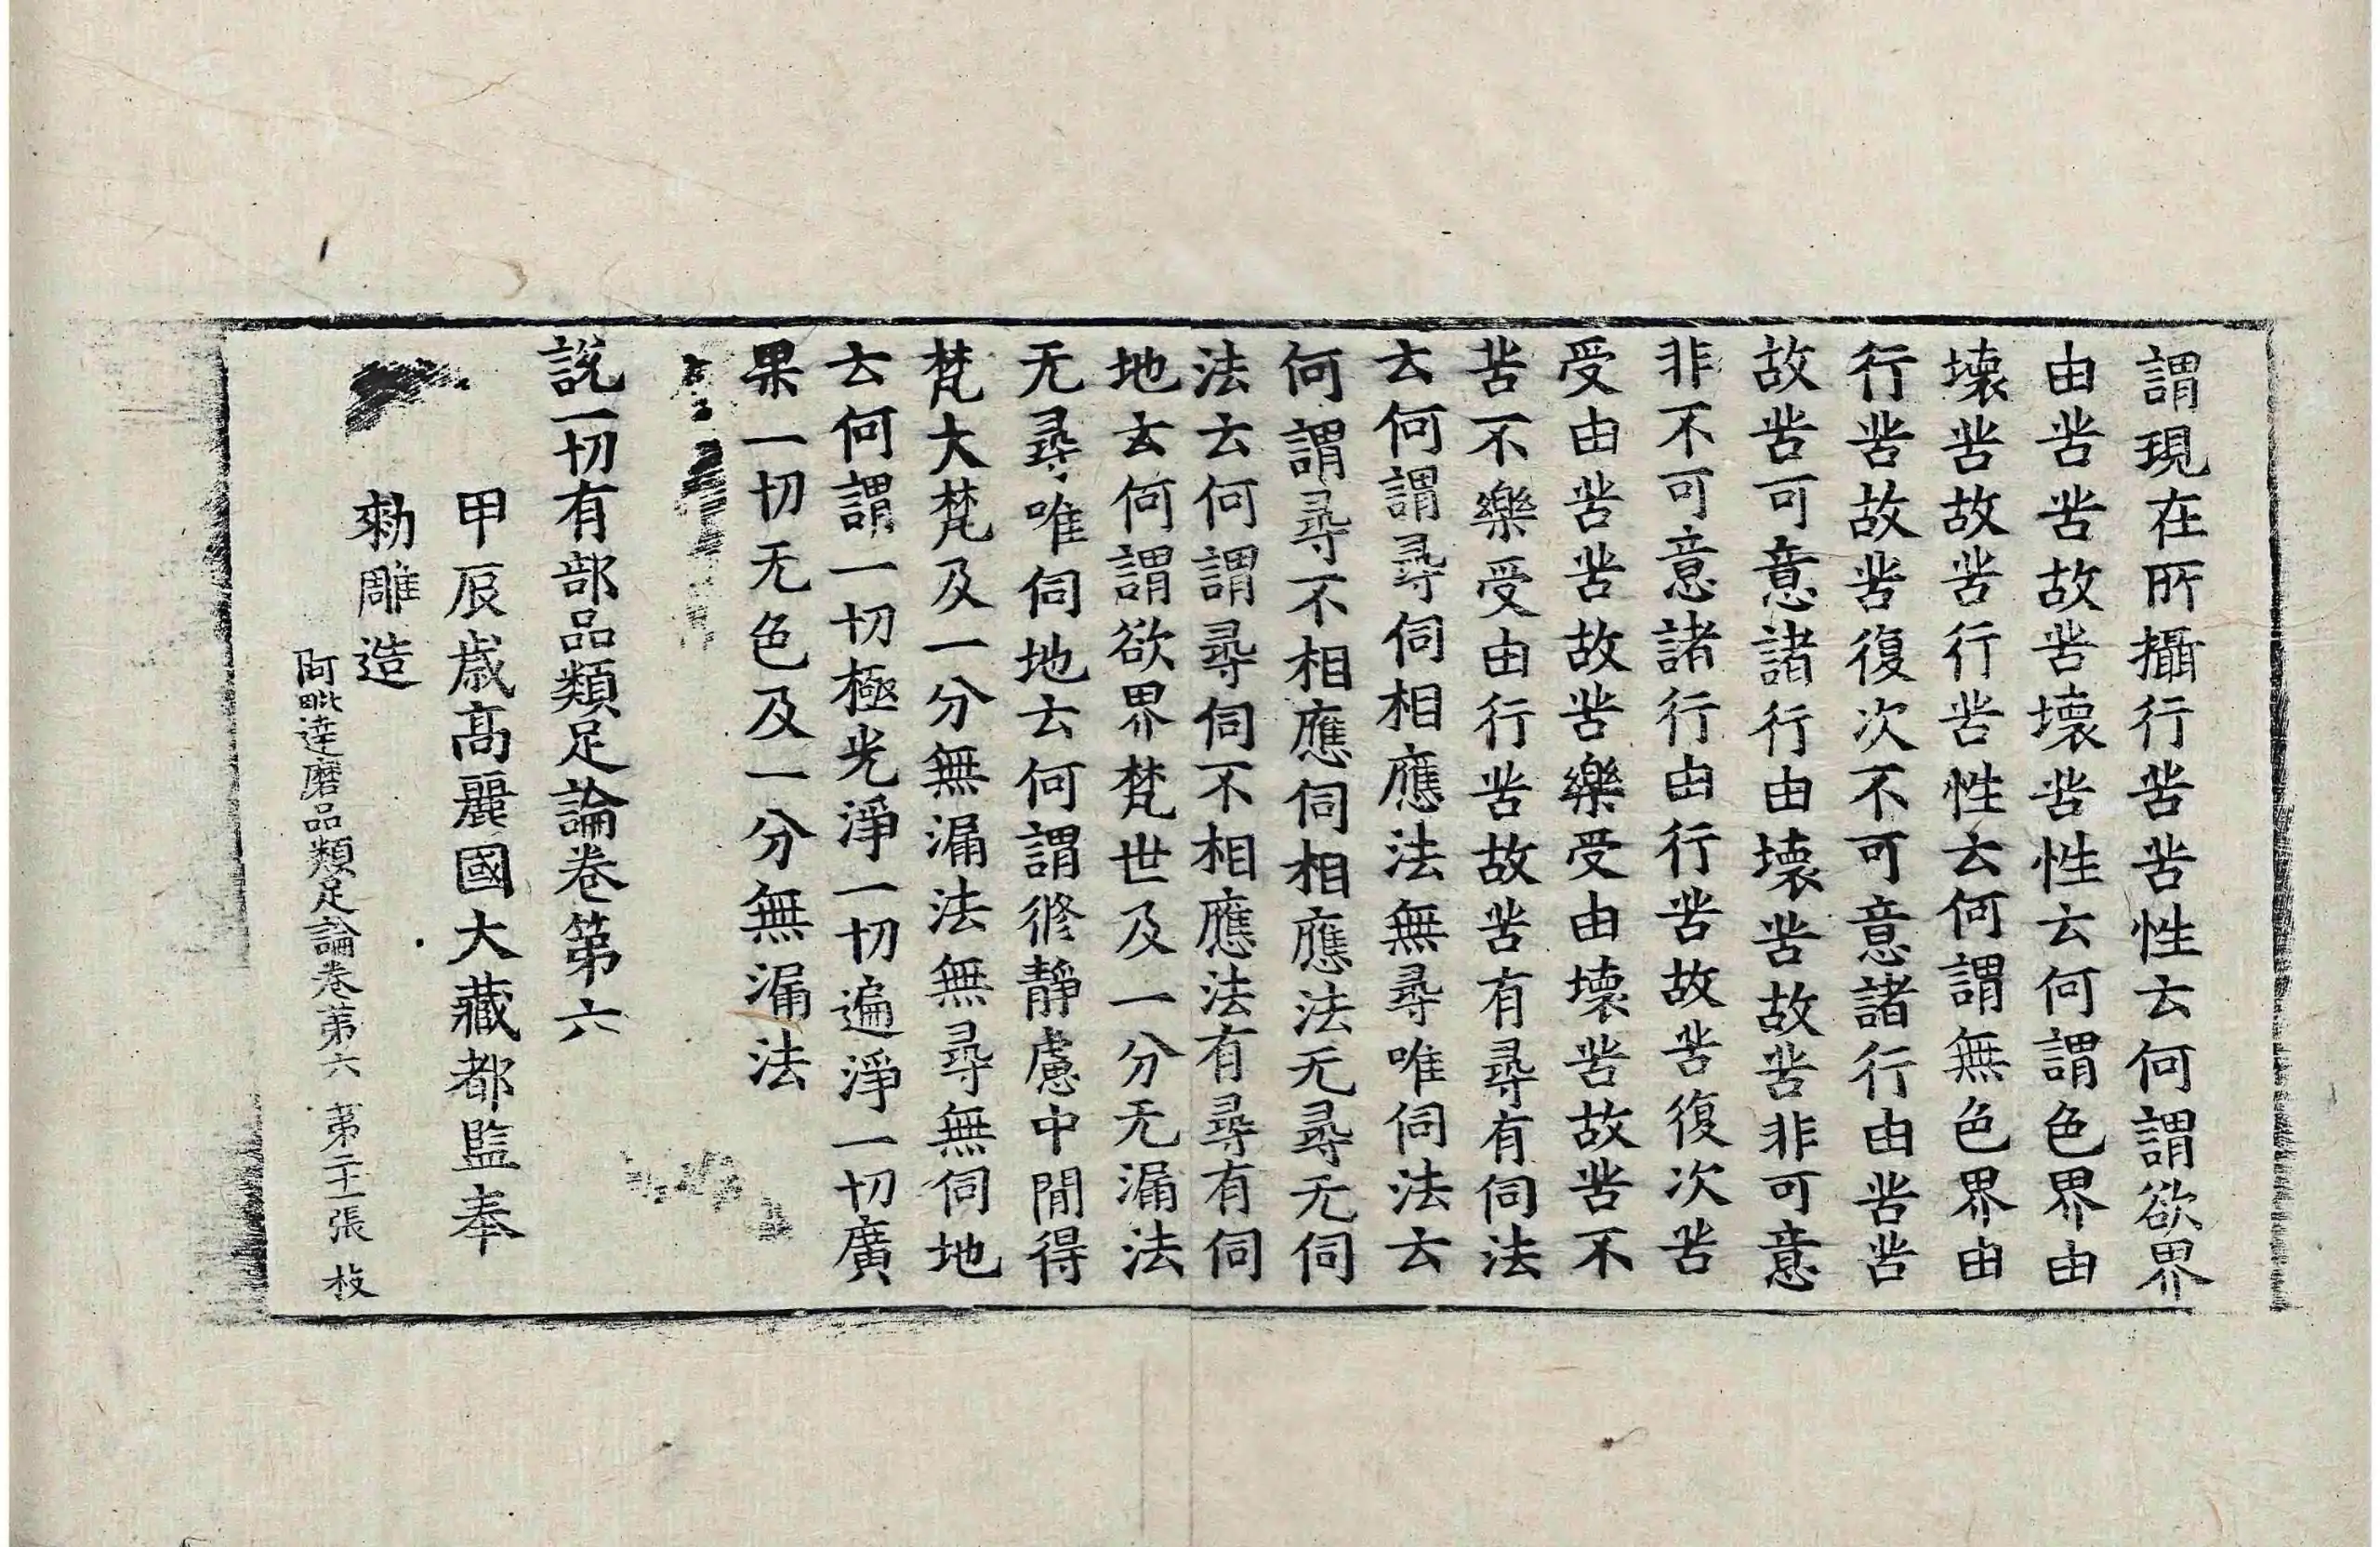 謂現在所攝行苦苦性云何謂欲界
由苦苦故苦壞苦性云何謂色界由
壞苦故苦行苦性云何謂無色界由
行苦故苦復次不可意諸行由苦苦
故苦可意諸行由壞苦故苦非可意
非不可意諸行由行苦故苦復次苦
受由苦苦故苦樂受由壞苦故苦不
苦不樂受由行苦故苦有尋有伺法
云何謂尋伺相應法無尋唯伺法云
何謂尋不相應伺相應法无尋无伺
法云何謂尋伺不相應法有尋有伺
地云何謂欲界梵世及一分无漏法
无尋唯伺地云何謂修靜慮中間得
梵大梵及一分無漏法無尋無伺地
云何謂一切極光淨一切遍淨一切廣
果一切无色及一分無漏法
說一切有部品類足論卷第六
甲辰歲高麗國大藏都監奉
勅雕造
阿毗達磨品類足論卷第六 第二十一張 枝